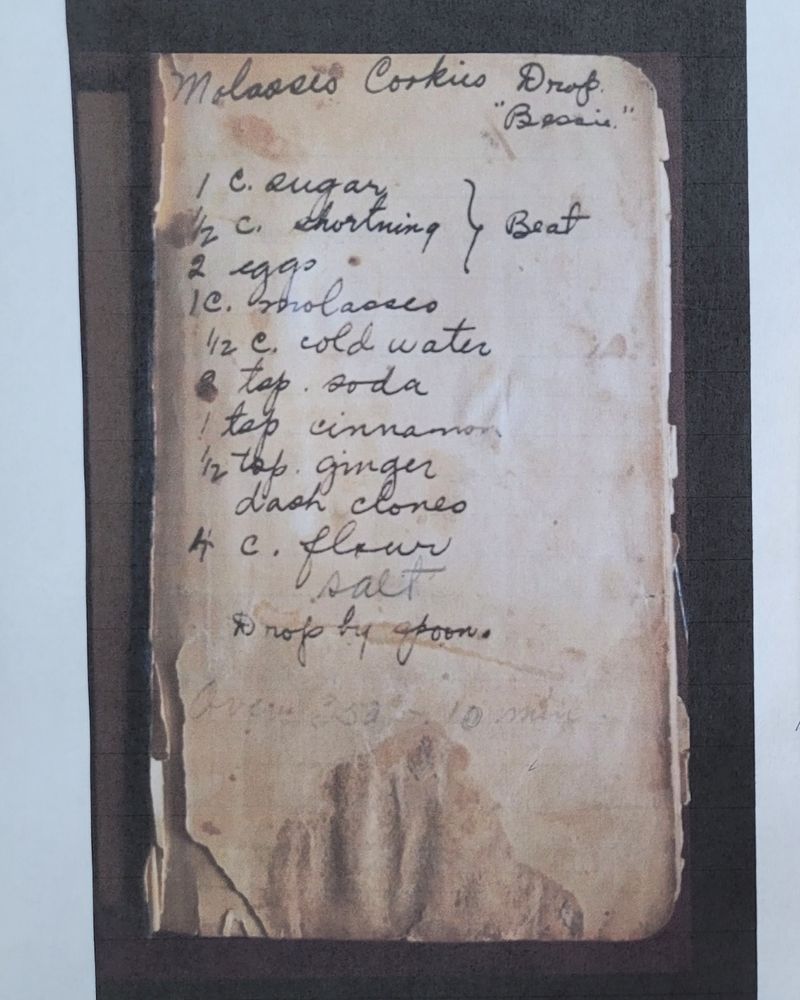 Molasses Cookies Drop.
"Bessie."
1 c. sugar
1/2 c. shortning } Beat
2 eggs
1 c. molasses
1/2 c. cold water
2 tsp. soda
1 tsp cinnamon
1/2 tsp. ginger
dash cloves
4 c. flour
salt
Drop by spoon.
Oven 350 - 10 min.